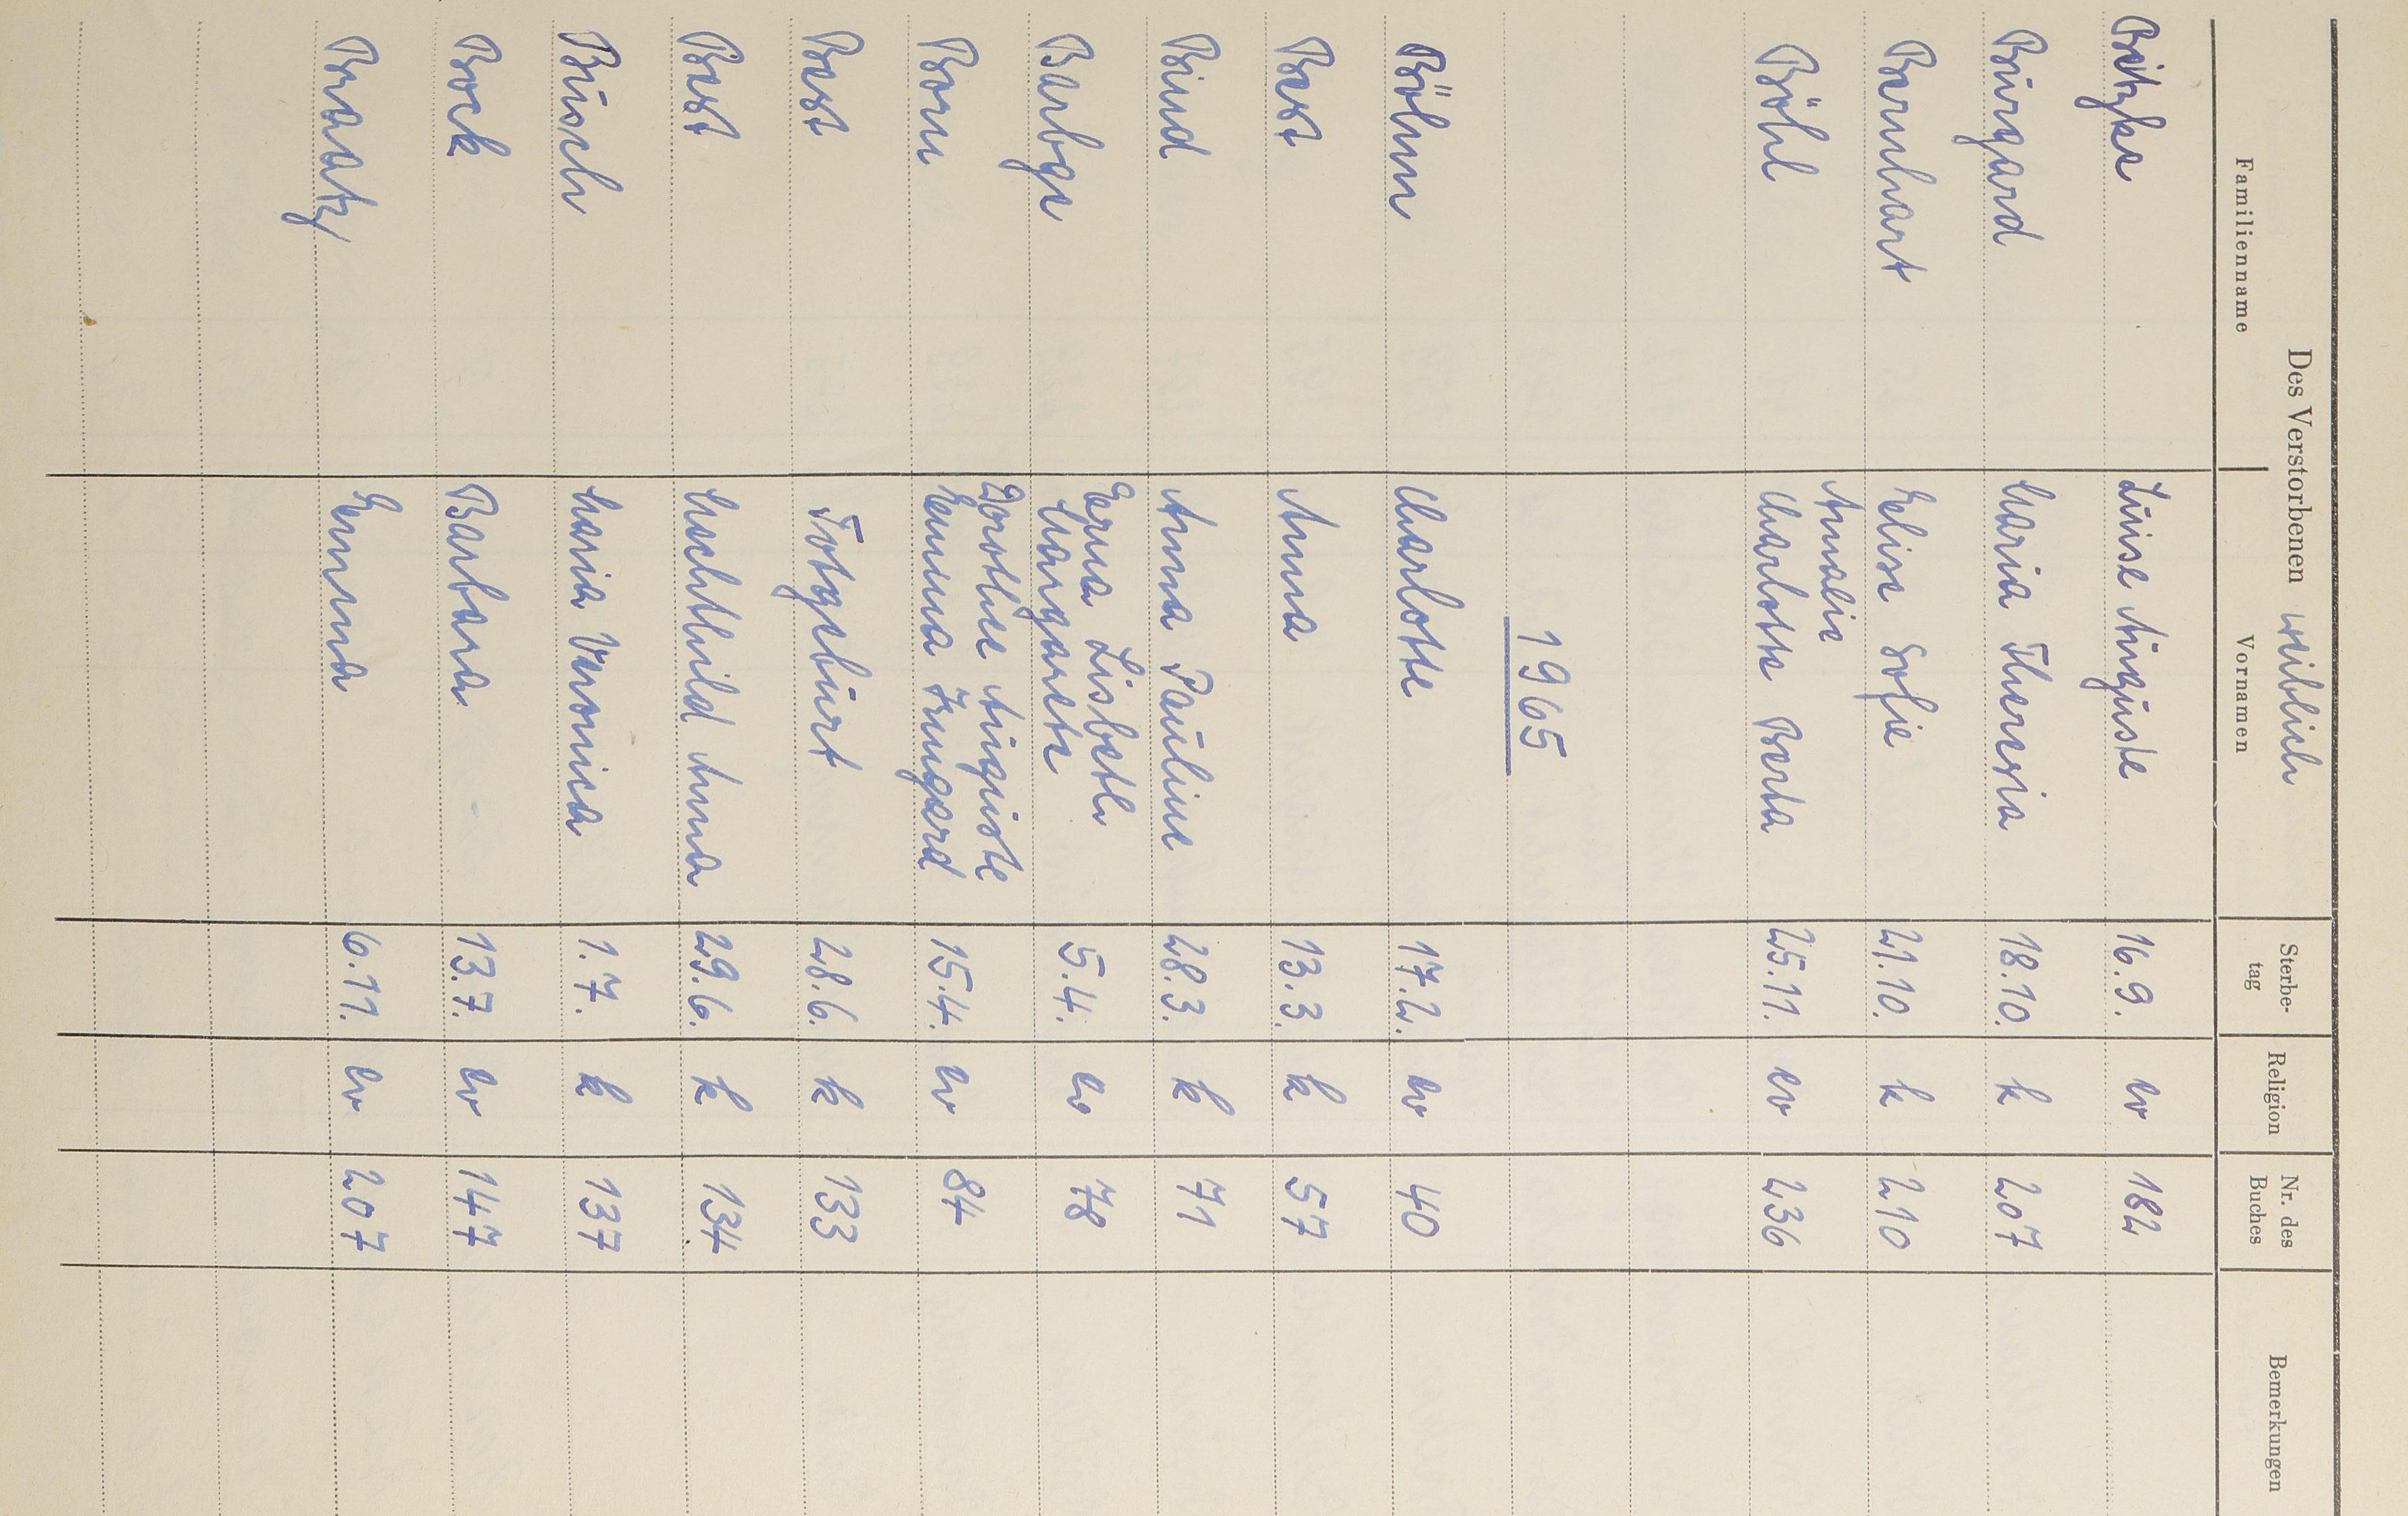 Des Verstorbenen weiblich
Familienname Vornamen Sterbe-tag Religion Nr. des Buches Bemerkungen
Luise Auguste 16.9. ev 182
Burgard Maria Theresia 18.10. k 207
Bernhart Elise Sofie 21.10. k 210
Amalie
Böhl Charlotte Berta 25.11. ev 236
1965
Böhm Charlotte 17.2. ev 40
Best Anna 13.3. k 57
Bund Anna Pauline 28.3. k 71
Erna Lisbeth
Barbge Margarete 5.4. ev 78
Dorothee Auguste
Born Emma Irmgard 15.4. ev 84
Best Totgeburt 28.6. k 133
Best Mechthild Anna 29.6. k 134
Busch Maria Veronica 1.7. k 137
Bock Barbara 13.7. ev 147
Braatz Emma 6.11. ev 207